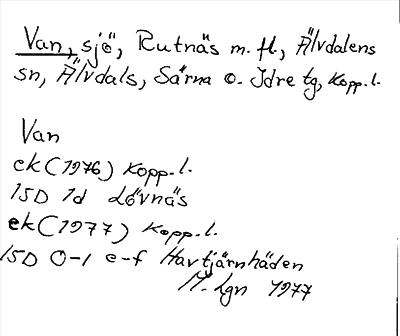 Van, sjö, Rutnäs m. fl., Älvdalens
sn, Älvdals, Särna o. Idre tg, Kopp. l.
Van
ek (1976) Kopp. l.
15D 1d Lövnäs
ek (1977) Kopp. l.
15D 0-1 e-f Havtjärnhäden
M. Lgn 1977